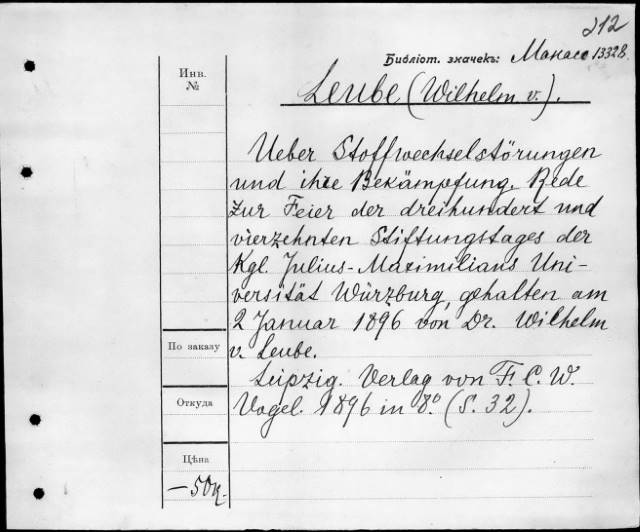 212
Библіот. значекъ: Манасс 13328.
Инв.
№
Leube (Wilhelm v.).
Ueber Stoffwechselstörungen
und ihre Bekämpfung. Rede
zur Feier der dreihundert und
vierzehnten Stiftungstages der
Kgl. Julius-Maximilians Uni-
versität Würzburg, gehalten am
2 Januar 1896 von Dr. Wilhelm
v. Leube.
По заказу
Leipzig. Verlag von F. C. W.
Vogel. 1896 in 8.° (S. 32).
Откуда
Цѣна
—50к.